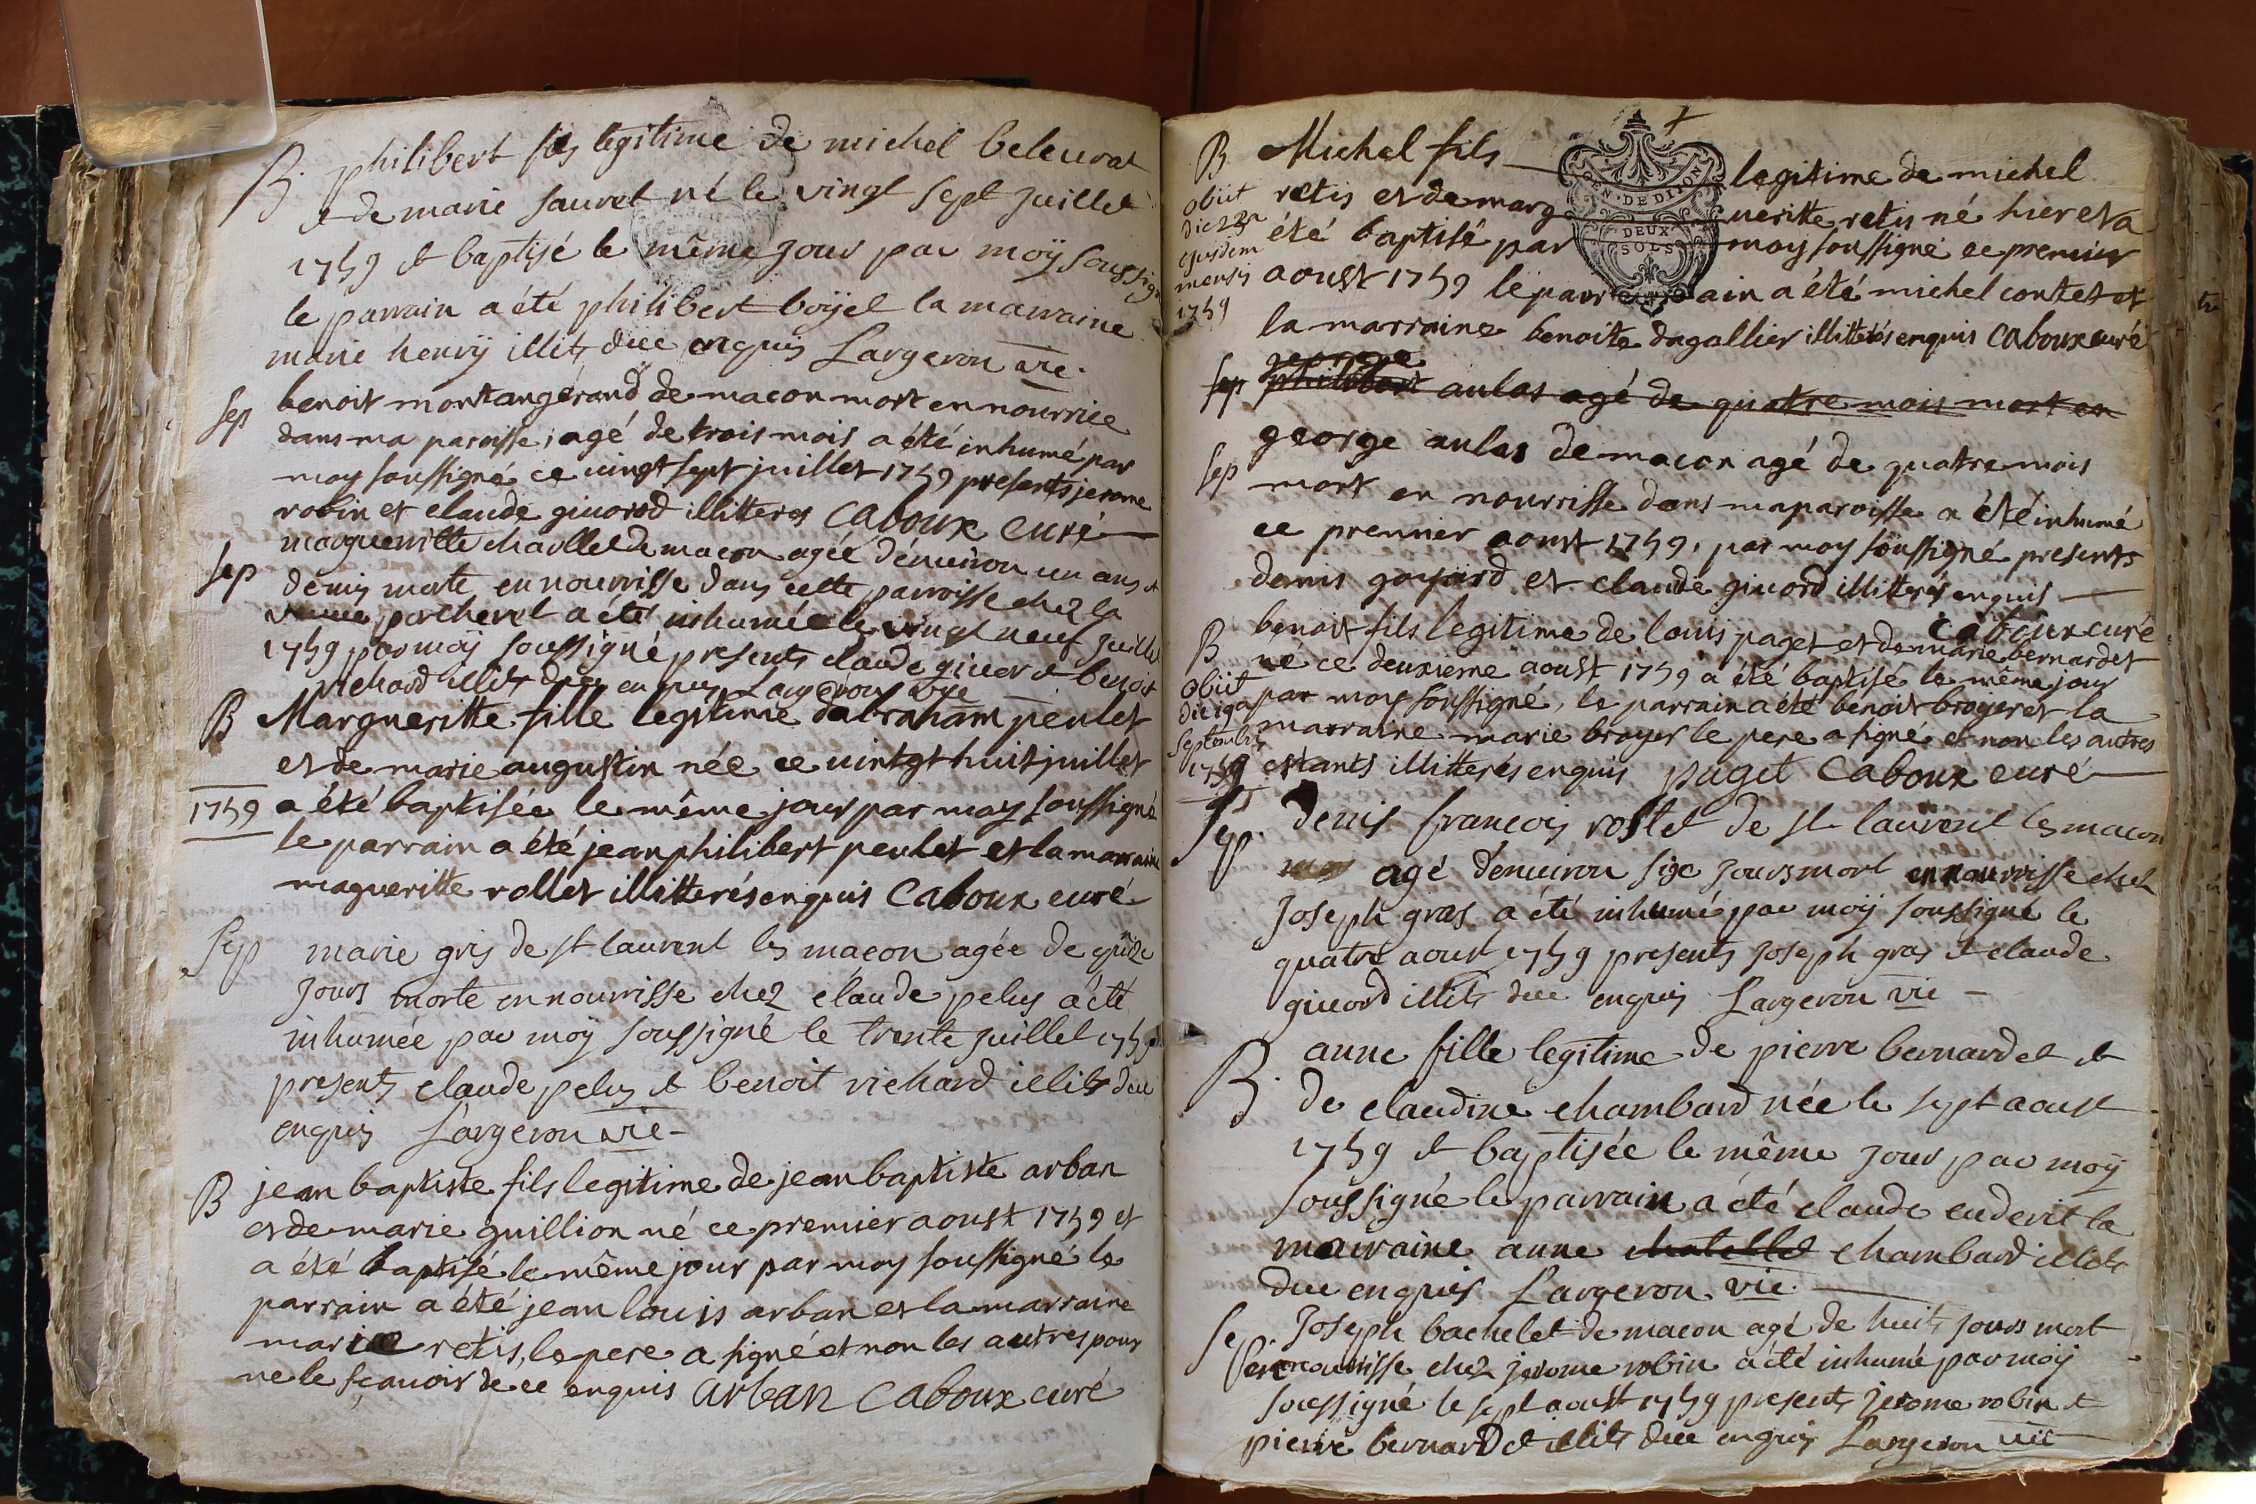 B. philibert fils legitime de michel beleurat
& de marie sauret né le vingt sept juillet
1759 & baptisé le même jour par moÿ soussigné
le parrain a été philibert boyel la marraine
marie henrÿ illits dee enquis Largeron vre.
Sep benoit montangérand de macon mort en nourrice
dans ma paroisse, agé de trois mois a été inhumé par
moy soussigné ce vingt sept juillet 1759 presents jerome
robin et claude givord illitteres Caboux curé
Sep marguerritte chavllet de macon agée d'environ un ans &
demis morte en nourrisse dans cette parroisse chez la
veuve porcheret a été inhumée le vingt neuf juillet
1759 par moÿ soussigné presents claude givor & benoit
richard illits dee enquis Largeron vre
B Margueritte fille legitime d'abraham peulet
et de marie augustin née ce vintgt huit juillet
1759 a été baptisée le même jour par moy soussigné
le parrain a été jean philibert peulet et la marraine
magueritte rollet illitterés enquis Caboux curé
Sep marie gris de st laurent les macon agée de quinze
jours morte en nourrisse chez claude pelus a été
inhumée par moÿ soussigné le trente juillet 1759
presents claude pelus & benoit richard illits dee
enquis Largeron vre
B jean baptiste fils legitime de jean baptiste arban
et de marie guillion né ce premier aoust 1759 et
a été baptisé le même jour par moy soussigné le
parrain a été jean louis arban et la marraine
marie retis, le pere a signé et non les autres pour
ne le sçavoir de ce enquis arban Caboux curé
B Michel fils legitime de michel
retis et de margueritte retis né hier et a
été baptisé par moy soussigné ce premier
aoust 1759 le parrain a été michel contet et
la marraine benoite dagallier illitterés enquis Caboux curé
obiit
die 22a
ejusdem
mensis
1759
GEN. DE DIJON
DEUX
SOLS
george
Sep philibert aulas agé de quatre mois mort en
Sep george aulas de macon agé de quatre mois
mort en nourrisse dans ma paroisse a été inhumé
ce premier aoust 1759, par moy soussigné presents
denis goyard et claude givord illitterés enquis
Caboux curé
B benoit fils legitime de louis paget et de marie bernardet
né ce deuxieme aoust 1759 a été baptisé le même jour
par moy soussigné, le parrain a été benoit broyer et la
marraine marie broyer le pere a signé et non les autres
estants illitterés enquis paget Caboux curé
obiit
die 19a
septembris
1759
Sep. denis françois rostet de st laurent les macon
agé d'environ six jours mort en nourrisse chez
Joseph gras a été inhumé par moÿ soussigné le
quatre aoust 1759 presents Joseph gras & claude
givord illits dee enquis Largeron vic
B. anne fille legitime de pierre bernardet &
de claudine chambard née le sept aoust
1759 & baptisée le même jour par moÿ
soussigné le parrain a été claude enderit la
marraine anne chatellet chambard illits
dee enquis Largeron. vic.
Sep. Joseph bachelet de macon agé de huits jours mort
en nourrisse chez jerome robin a été inhumé par moÿ
soussigné le sept aoust 1759 presents jerome robin &
pierre bernardet illits dee enquis Largeron vic